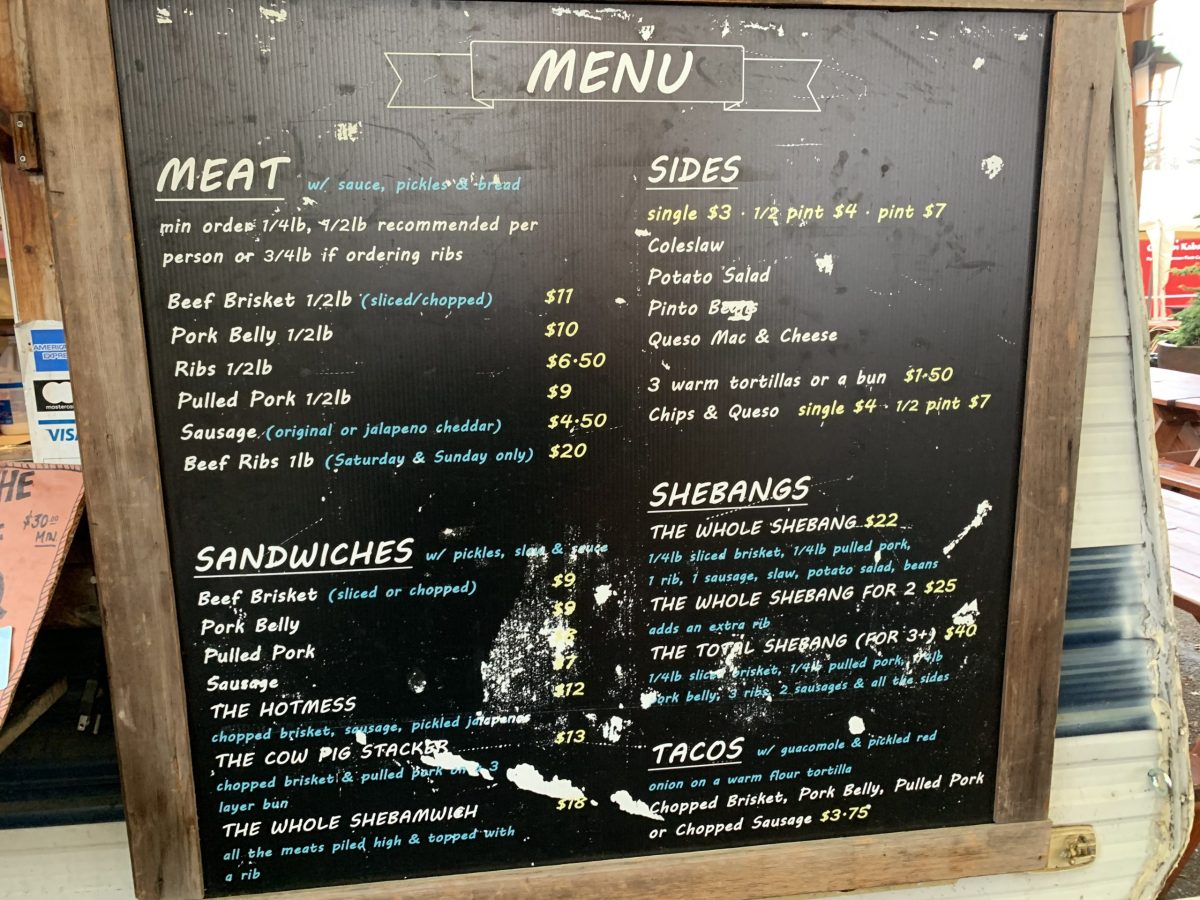 MENU
MEAT w/ sauce, pickles & bread
min order 1/4lb, 1/2lb recommended per
person or 3/4lb if ordering ribs
Beef Brisket 1/2lb (sliced/chopped) $11
Pork Belly 1/2lb $10
Ribs 1/2lb $6.50
Pulled Pork 1/2lb $9
Sausage (original or jalapeno cheddar) $4.50
Beef Ribs 1lb (Saturday & Sunday only) $20
SANDWICHES w/ pickles, slaw & sauce
Beef Brisket (sliced or chopped) $9
Pork Belly $9
Pulled Pork
Sausage $7
THE HOTMESS $12
chopped brisket, sausage, pickled jalapenos
THE COW PIG STACKER $13
chopped brisket & pulled pork on a 3
layer bun
THE WHOLE SHEBAMWICH $18
all the meats piled high & topped with
a rib
SIDES
single $3 · 1/2 pint $4 · pint $7
Coleslaw
Potato Salad
Pinto Beans
Queso Mac & Cheese
3 warm tortillas or a bun $1.50
Chips & Queso single $4 · 1/2 pint $7
SHEBANGS
THE WHOLE SHEBANG $22
1/4lb sliced brisket, 1/4lb pulled pork,
1 rib, 1 sausage, slaw, potato salad, beans
THE WHOLE SHEBANG FOR 2 $25
adds an extra rib
THE TOTAL SHEBANG (FOR 3+) $40
1/4lb sliced brisket, 1/4lb pulled pork, 1/4lb
pork belly, 3 ribs, 2 sausages & all the sides
TACOS w/ guacomole & pickled red
onion on a warm flour tortilla
Chopped Brisket, Pork Belly, Pulled Pork
or Chopped Sausage $3.75
AMERICAN
EXPRE
mastercar
VISA
HE
$30.00
MIN